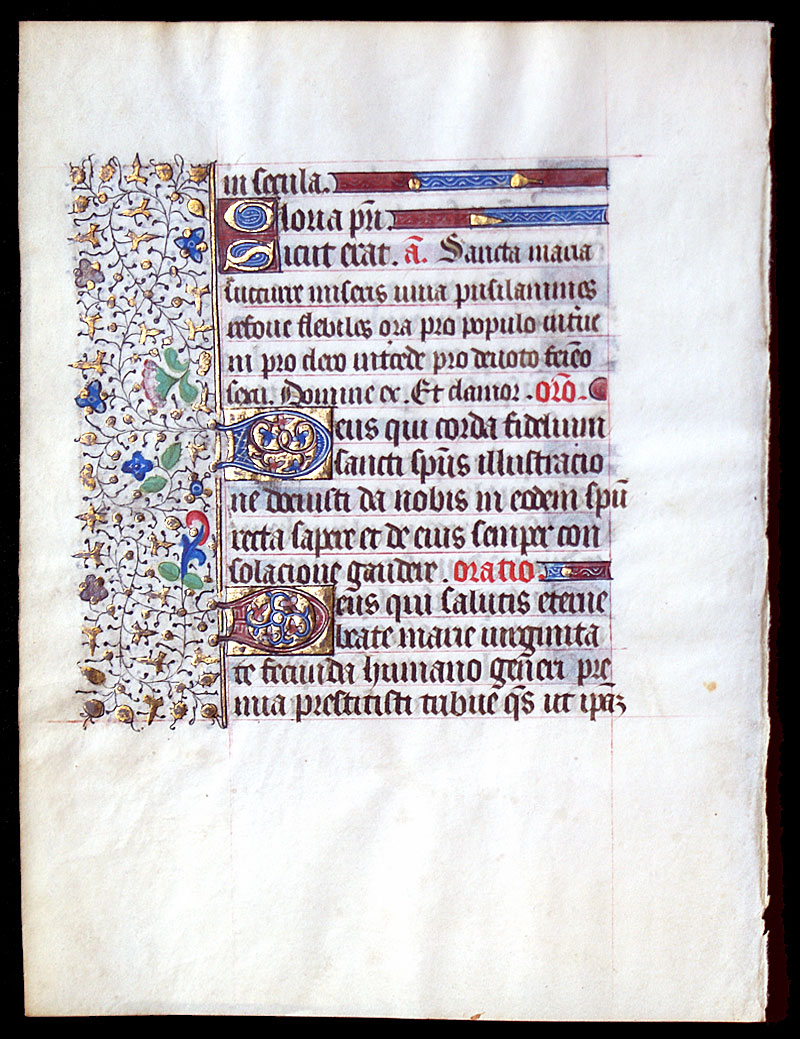 in secula.
Gloria pr̄i.
Sicut erat. a͞. Sancta maria
succurre miseris iuua pusilanimes
refoue flebiles ora pro populo int̄ue
ni pro clero int̄cede pro deuoto femī̄eo
sexu. Domine ex. Et clamor. or̄o.
Deus qui corda fidelium
sancti sp̄us illustracio
ne docuisti da nobis in eodem sp̄u
recta sapere et de eius semper con
solacione gaudere. oratio.
Deus qui salutis eterne
beate marie uirginita
te fecunda humano gen̄eri pre
mia prestitisti tribue q̄s ut ip̄aꝫ